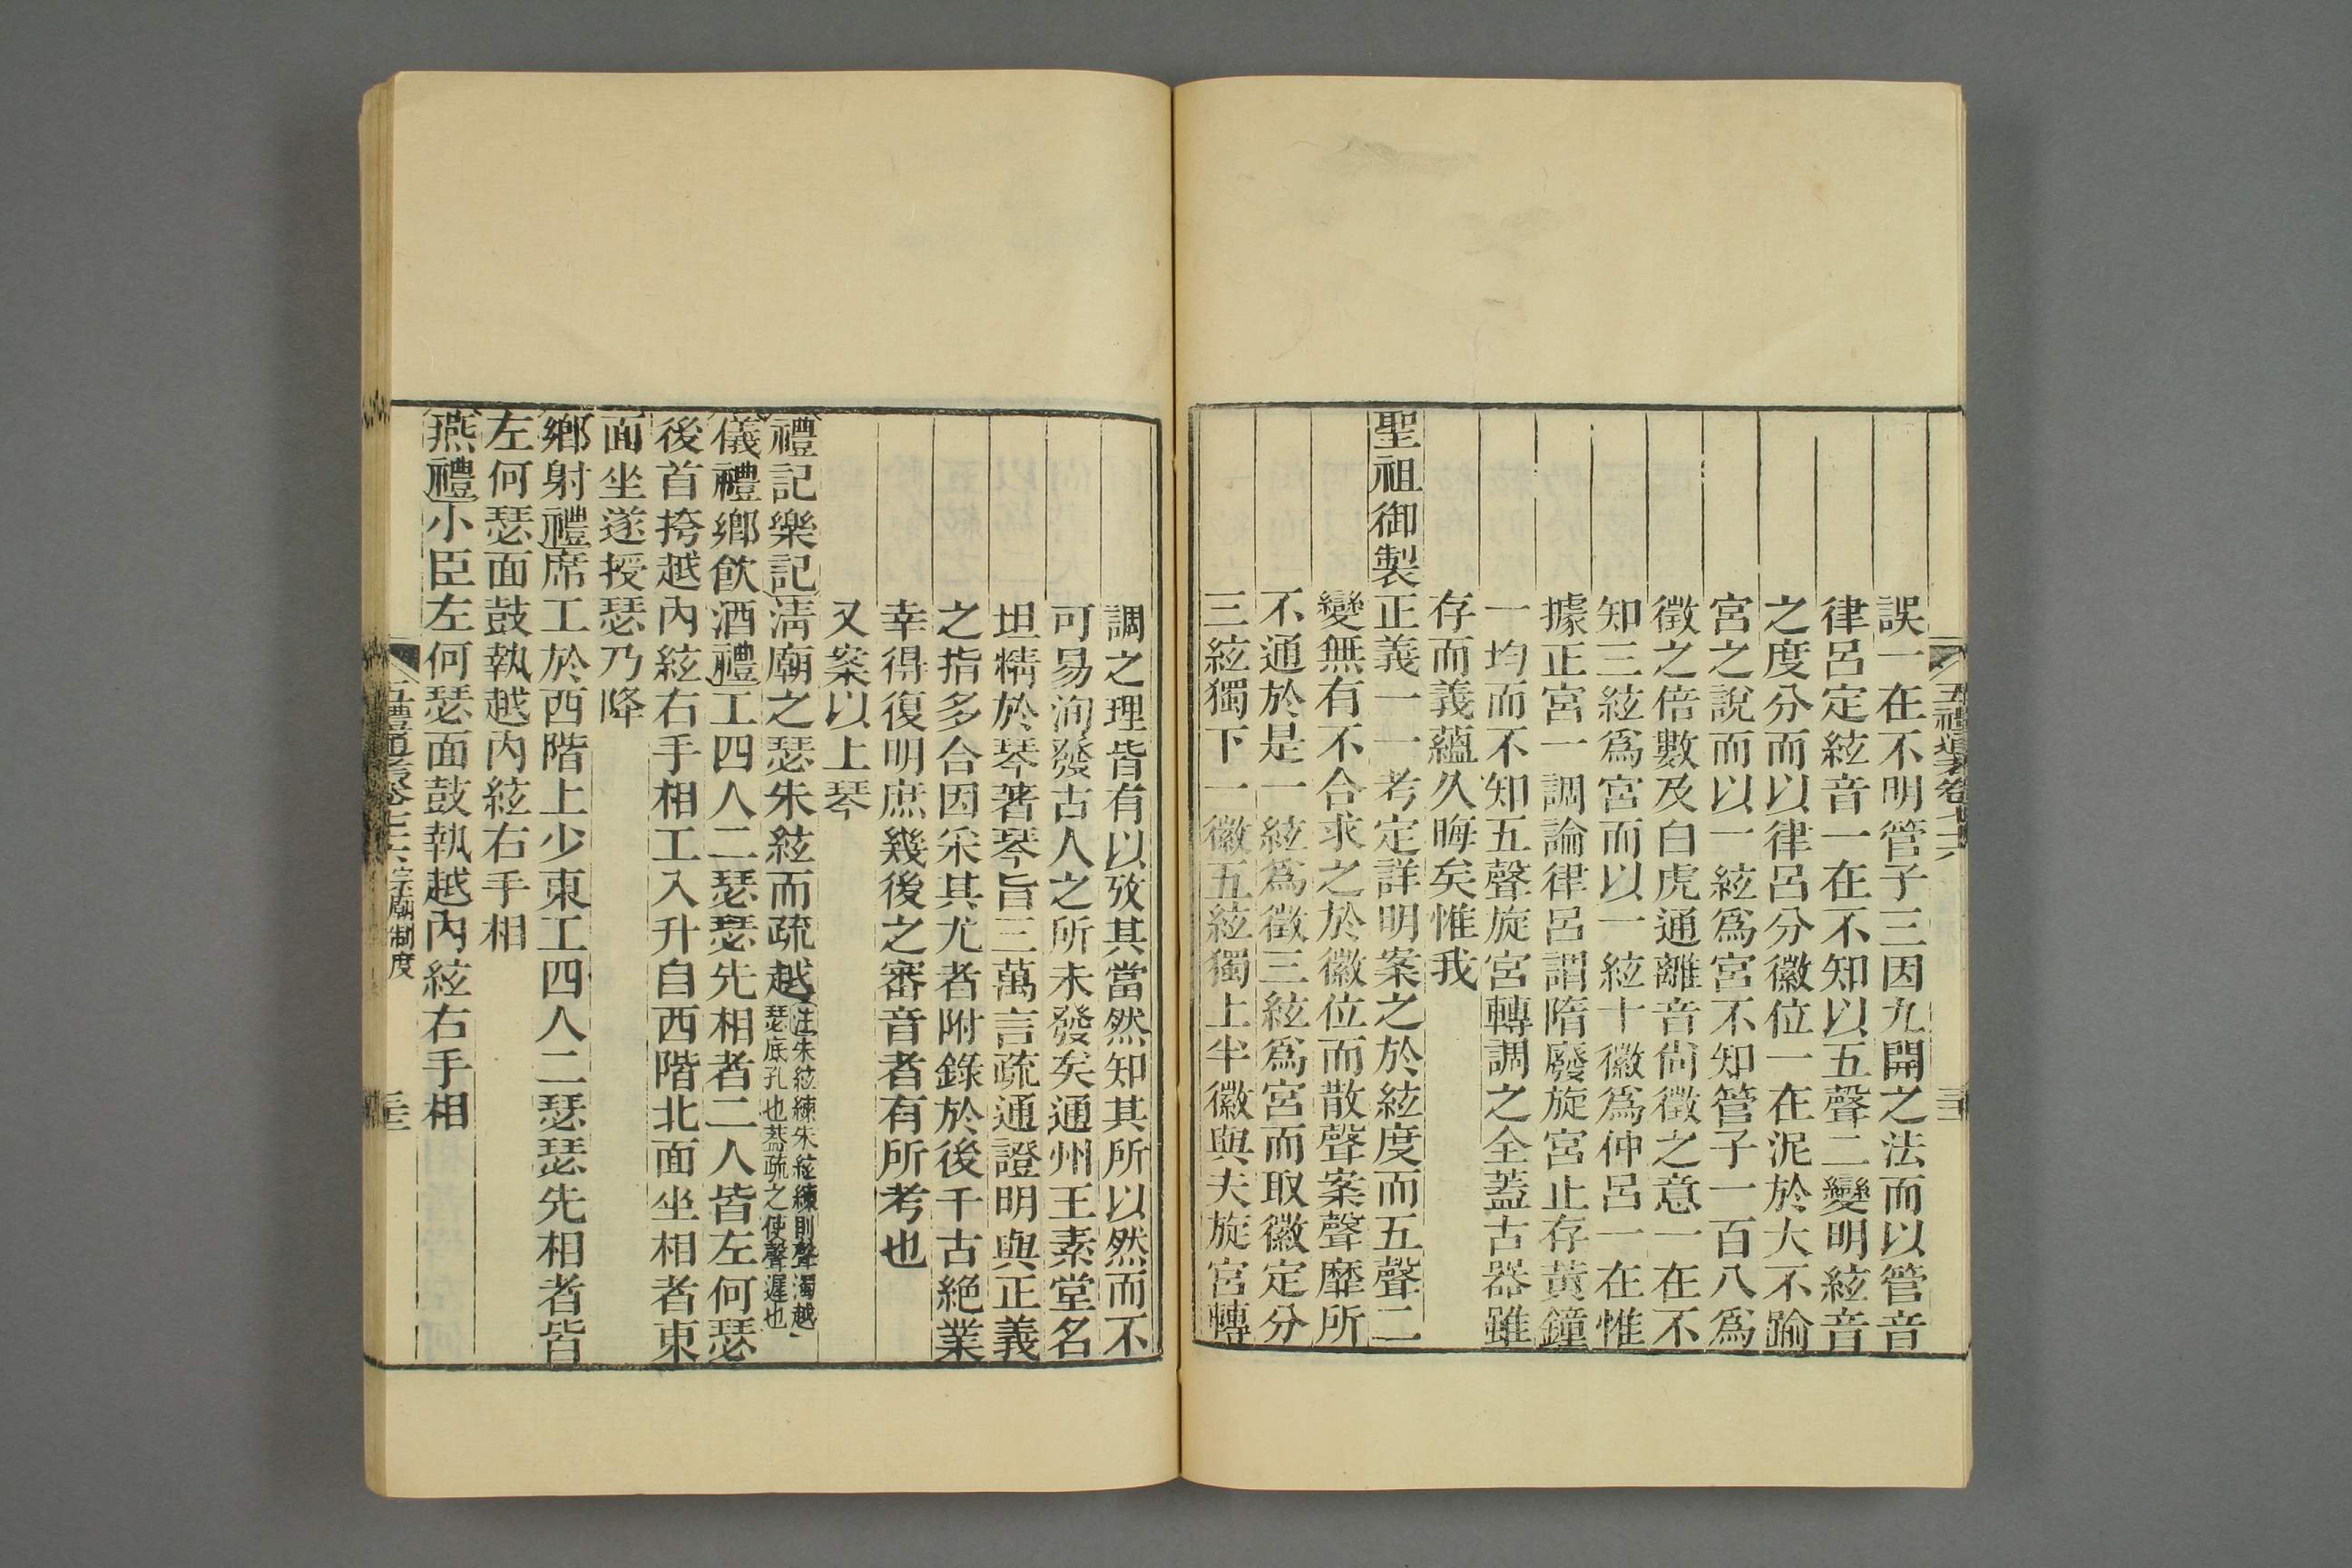 誤一在不明管子三因九開之法而以管音
律呂定絃音一在不知以五聲二變明絃音
之度分而以律呂分徽位一在泥於大不踰
宮之說而以一絃爲宮不知管子一百八爲
徵之倍數及白虎通離音尙徵之意一在不
知三絃爲宮而以一絃十徽爲仲呂一在惟
據正宮一調論律呂謂隋廢旋宮止存黃鐘
一均而不知五聲旋宮轉調之全蓋古器雖
存而義蘊久晦矣惟我
聖祖御製正義一一考定詳明案之於絃度而五聲二
變無有不合求之於徽位而散聲案聲靡所
不通於是一絃爲徵三絃爲宮而取徽定分
三絃獨下一徽五絃獨上半徽與夫旋宮轉
調之理皆有以攷其當然知其所以然而不
可易洵發古人之所未發矣通州王素堂名
坦精於琴著琴旨三萬言疏通證明與正義
之指多合因采其尤者附錄於後千古絶業
幸得復明庶幾後之審音者有所考也
又案以上琴
禮記樂記淸廟之瑟朱絃而疏越注朱絃練朱絃練則聲濁越
瑟底孔也葢疏之使聲遲也
儀禮鄉飮酒禮工四人二瑟瑟先相者二人皆左何瑟
後首挎越內絃右手相工入升自西階北面坐相者東
面坐遂授瑟乃降
鄉射禮席工於西階上少東工四人二瑟瑟先相者皆
左何瑟面鼓執越內絃右手相
燕禮小臣左何瑟面鼓執越內絃右手相
五禮通考卷七十六宗廟制度